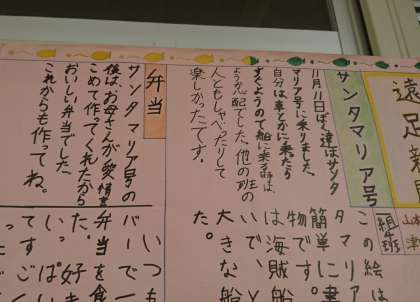 遠足新
サンタマリア号
11月11日ぼく達はサンタ
マリア号に乗りました。
自分はまどかに乗ったら
すぐようので船に乗る時は
ようか心配でした。他の班の
人ともしゃべったりして
楽しかったです。
弁当
サンタマリア号の
後は、お母さんが愛情を
こめて作ってくれたから
おいしい弁当でした。
これからも作ってね。
組
班
山本
津
この絵は
タマリア
簡単に書
物です。
は海賊船
いで、と
大きな船
た。
いつも
バーで一
弁当を食
た。好き
いっぱい
てすごく
ったで